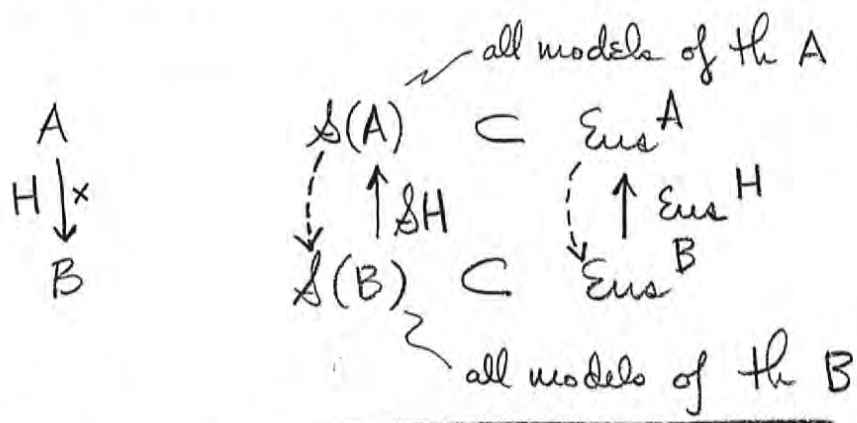 all models of th A
A S(A) ⊂ Ens^A
H × SH Ens^H
B S(B) ⊂ Ens^B
all models of th B